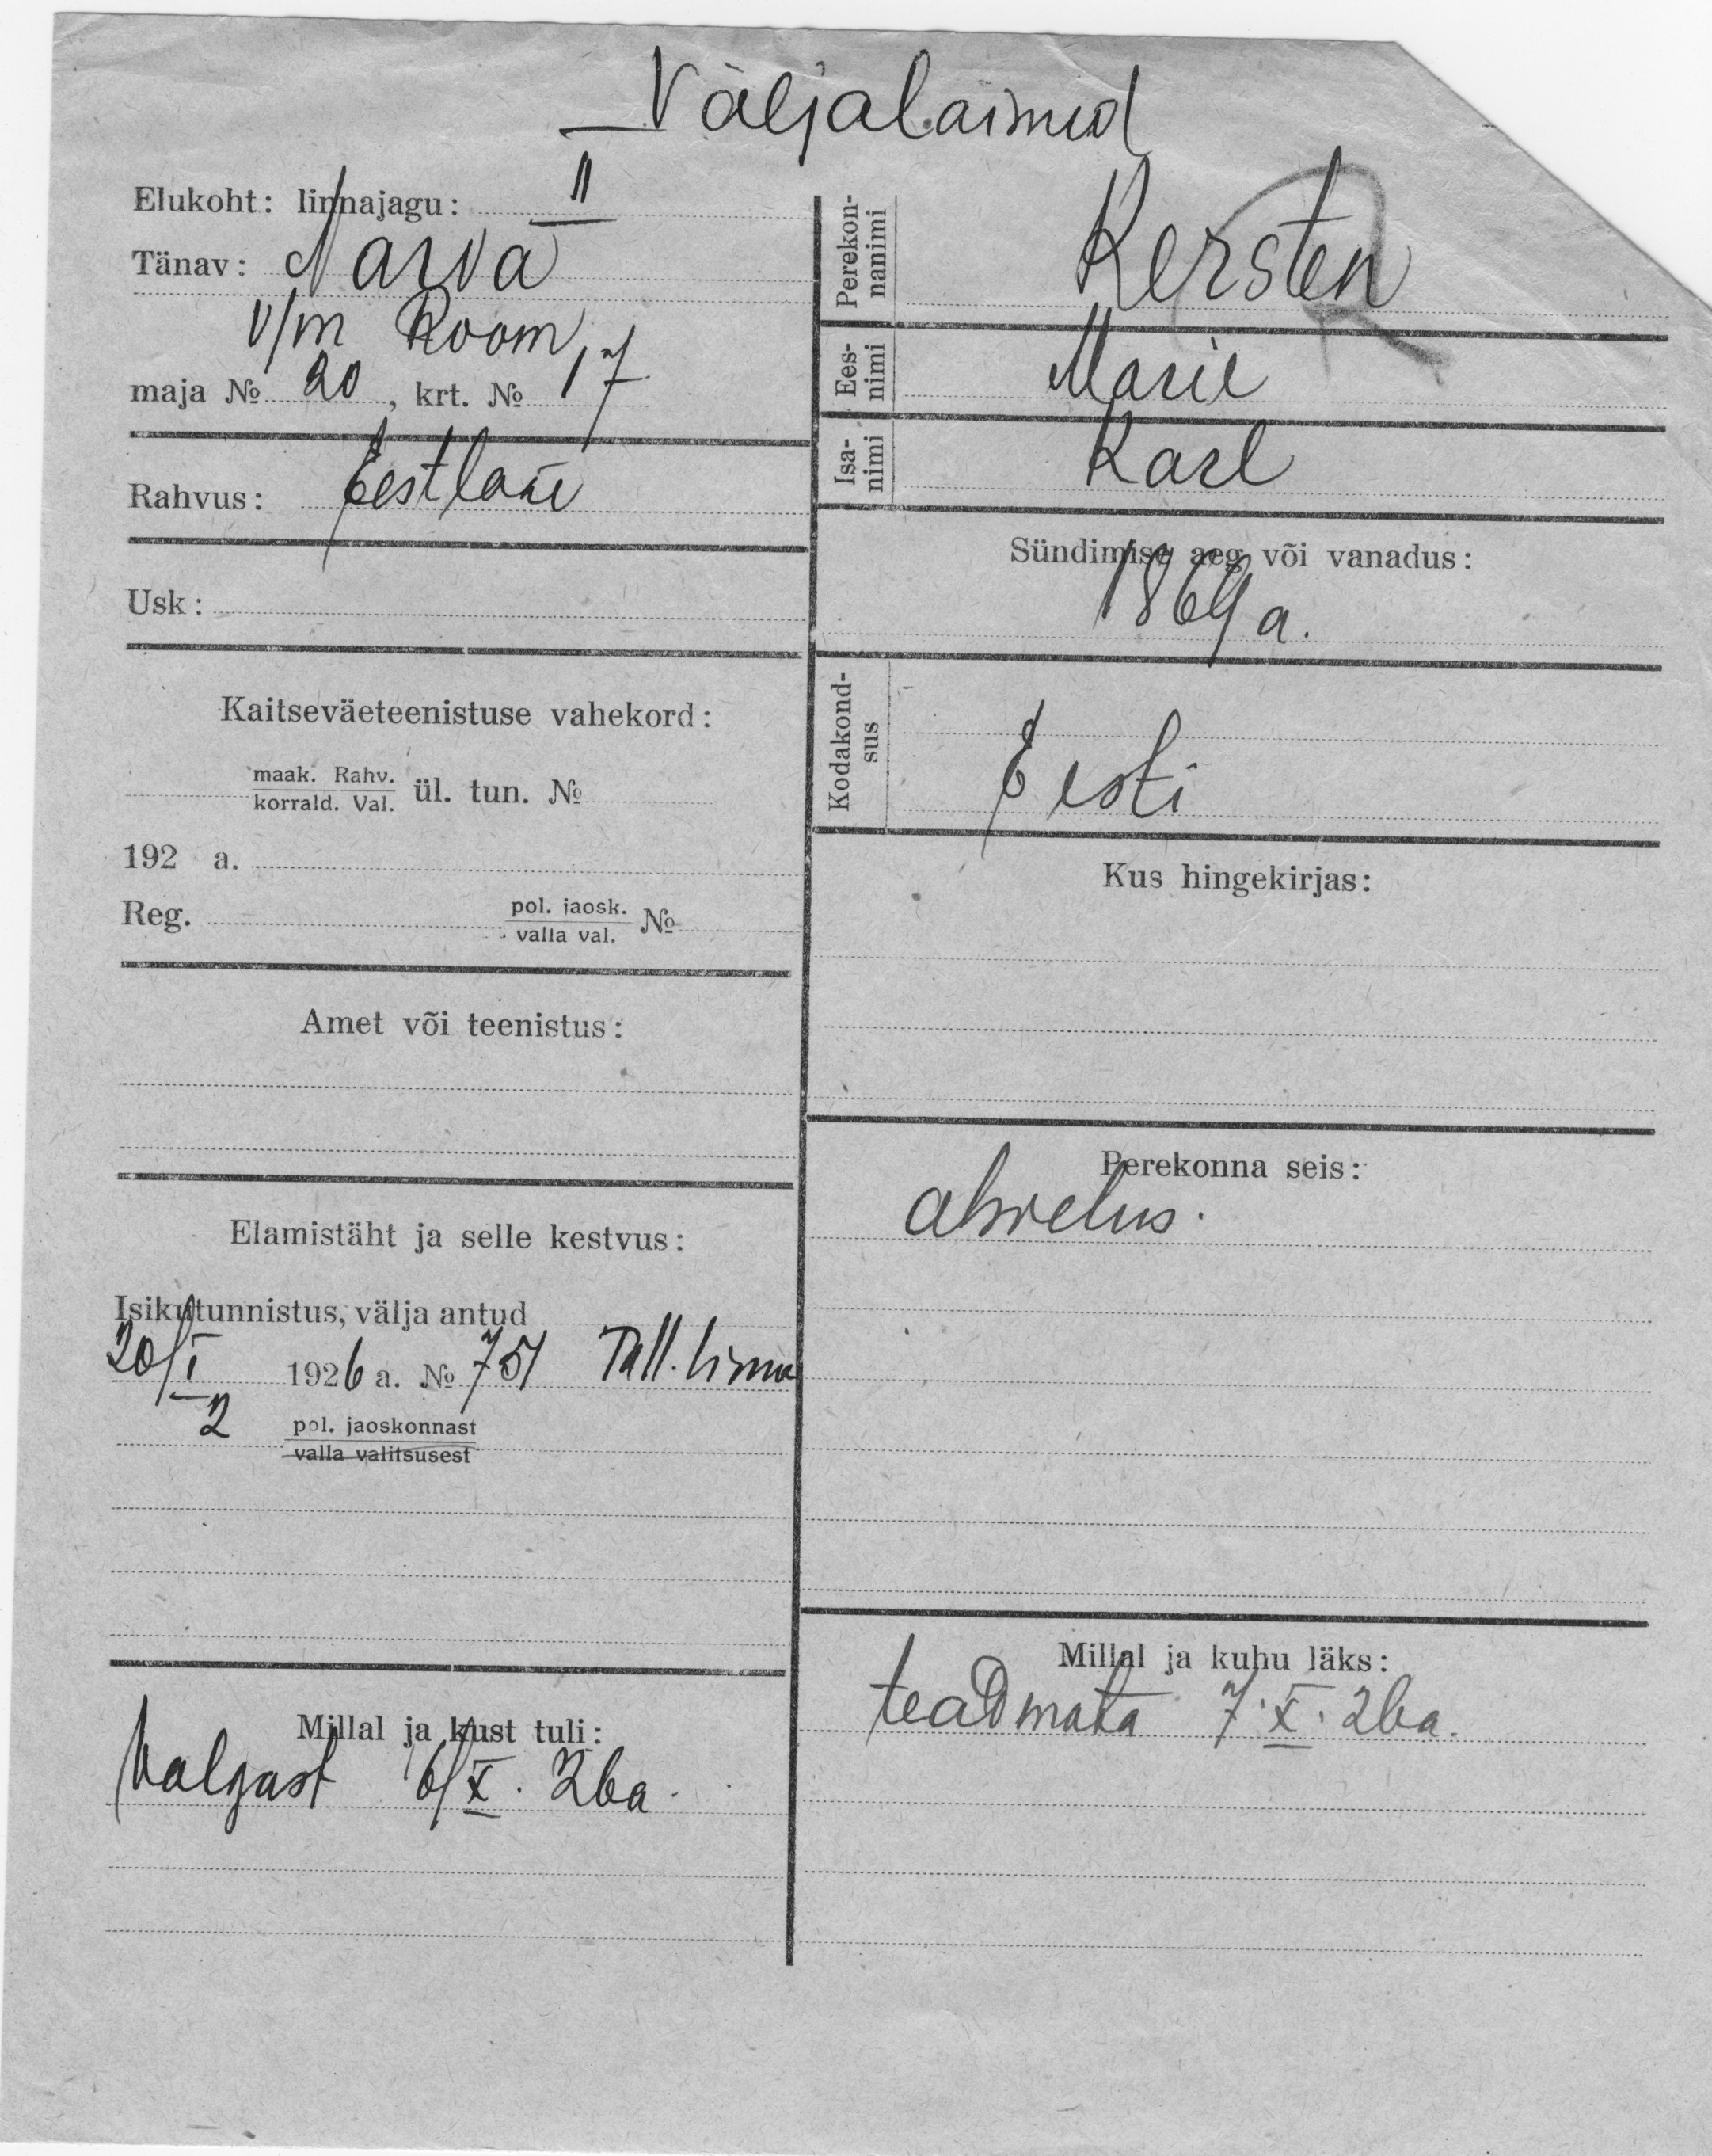 Väljaläinud
Elukoht: linnajagu: II
Tänav: Narva
v/m Room,
maja № 20, krt. № 17
Rahvus: Eestlane
Usk:
Kaitseväeteenistuse vahekord:
maak. Rahv.
korrald. Val. ül. tun. №
192 a.
Reg. pol. jaosk. №
valla val.
Amet või teenistus:
Elamistäht ja selle kestvus:
Isikutunnistus, välja antud
20/I 1926 a. № 751 Tall. linna
2 pol. jaoskonnast
valla valitsusest
Millal ja kust tuli:
Valgast 6/X. 26a.
Perekon-
nanimi
Kersten
Ees-
nimi
Marie
Isa-
nimi
Karl
Sündimise aeg või vanadus:
1869 a.
Kodakond-
sus
Eesti
Kus hingekirjas:
Perekonna seis:
abielus.
Millal ja kuhu läks:
teadmata 7.X.26a.